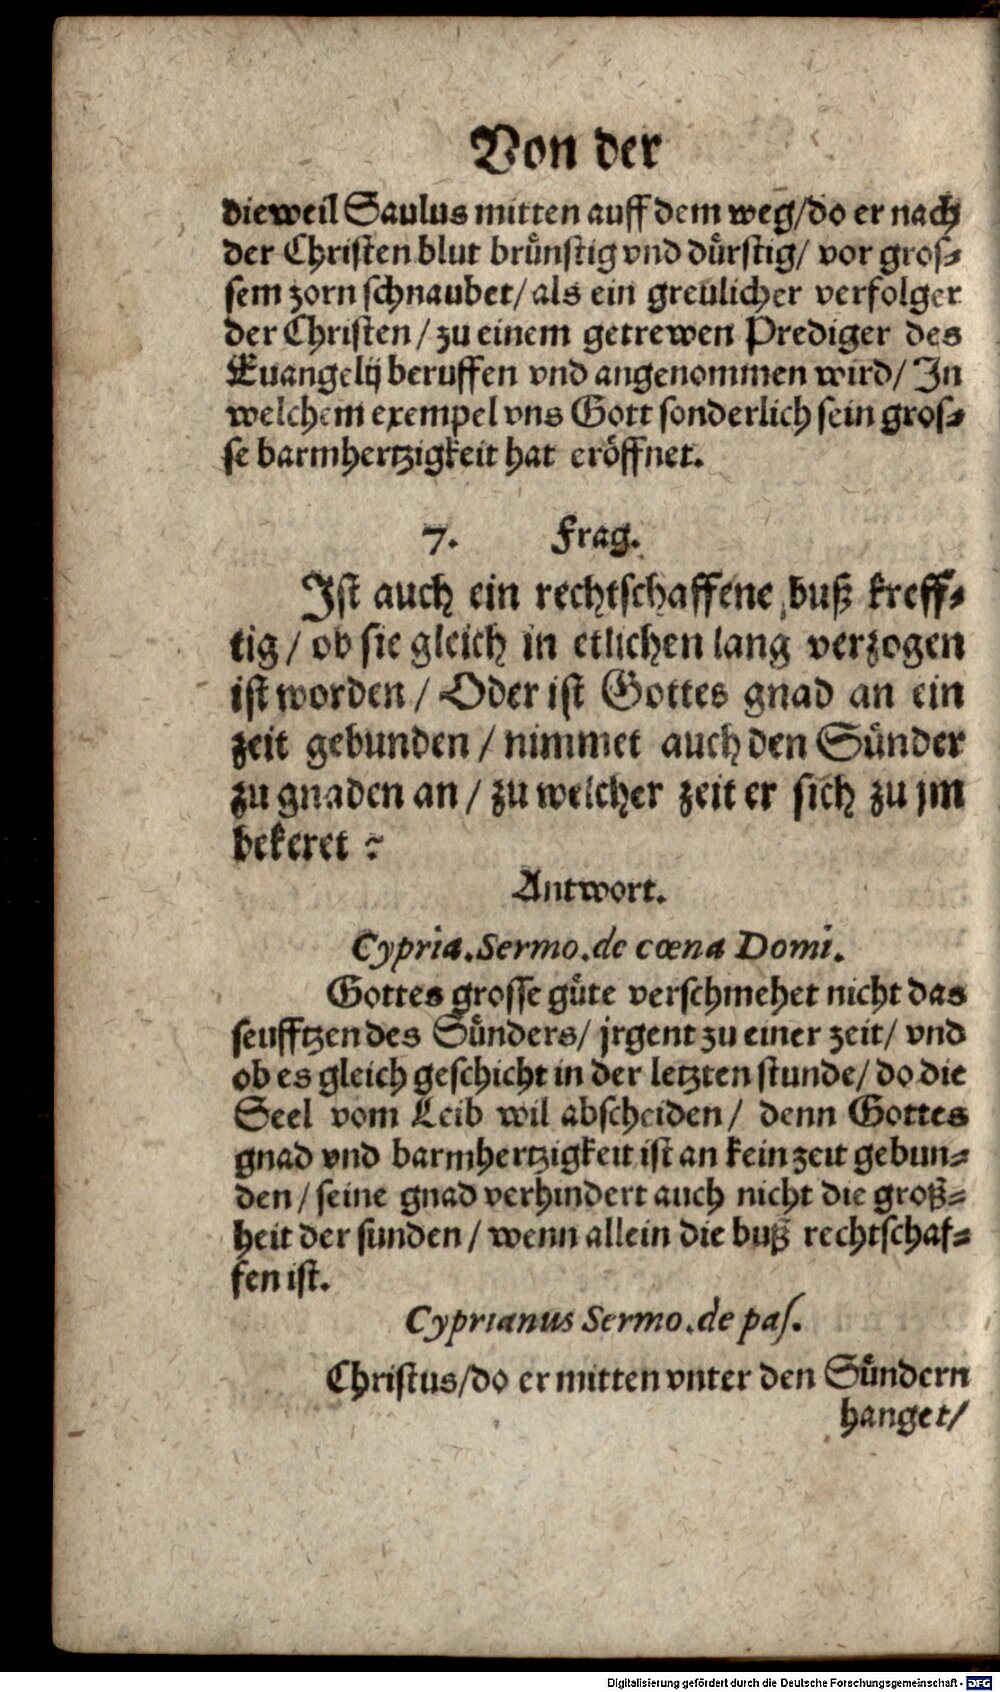 Von der
dieweil Saulus mitten auff dem weg/do er nach
der Christen blut brünstig vnd dürstig/ vor gros⸗
sem zorn schnaubet/ als ein greulicher verfolger
der Christen / zu einem getrewen Prediger des
Euangelij beruffen vnd angenommen wird/ In
welchem exempel vns Gott sonderlich sein gros⸗
se barmhertzigkeit hat eröffnet.
7. Frag.
Ist auch ein rechtschaffene buß kreff⸗
tig / ob sie gleich in etlichen lang verzogen
ist worden / Oder ist Gottes gnad an ein
zeit gebunden / nimmet auch den Sünder
zu gnaden an / zu welcher zeit er sich zu jm
bekeret ?
Antwort.
Cypria. Sermo. de cœna Domi.
Gottes grosse güte verschmehet nicht das
seufftzen des Sünders/ jrgent zu einer zeit/ vnd
ob es gleich geschicht in der letzten stunde/ do die
Seel vom Leib wil abscheiden/ denn Gottes
gnad vnd barmhertzigkeit ist an kein zeit gebun⸗
den / seine gnad verhindert auch nicht die groß⸗
heit der sunden / wenn allein die buß rechtschaf⸗
fen ist.
Cyprianus Sermo. de pas.
Christus/do er mitten vnter den Sündern
hanget/
Digitalisierung gefördert durch die Deutsche Forschungsgemeinschaft - DFG